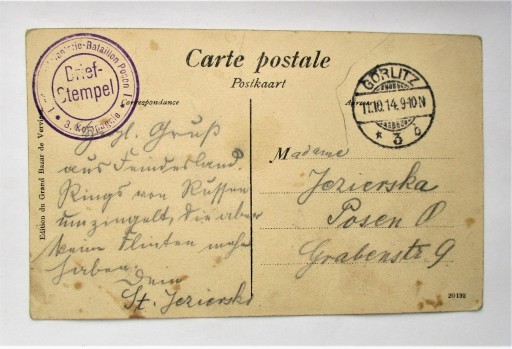 Carte postale
Postkaart
Infanterie-Bataillon Posen
Brief-
Stempel
* 3. Kompagnie *
Correspondance
Adresse
GÖRLITZ
11.10.14.9-10N
* 3 c
Edition du Grand Bazar de Verviers
Hrzl. Gruß
aus Feindesland
Rings von Russen
umzingelt, die aber
keine Flinten mehr
haben.
Dein
St. Jezierski
Madame
Jezierska
Posen O
Grabenstr 9
20132